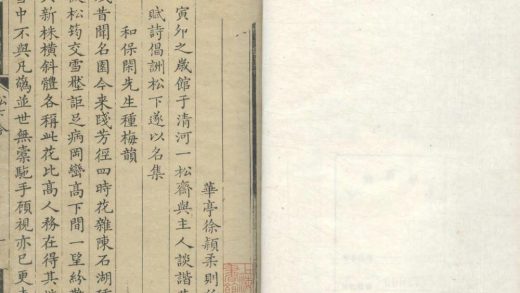 華亭徐穎柔則
寅卯之歲館于清河一松齋與主人談諧
賦詩倡詶松下遂以名集
和保閑先生種梅韻
昔聞名園今来踐芳徑四時花雜陳石湖
松筠交雪壓詎足病岡巒高下間一望紛
新株橫斜體各稱此花比高人務在得其
雪中不與凡蘤並世無橐駝手顧視亦已更